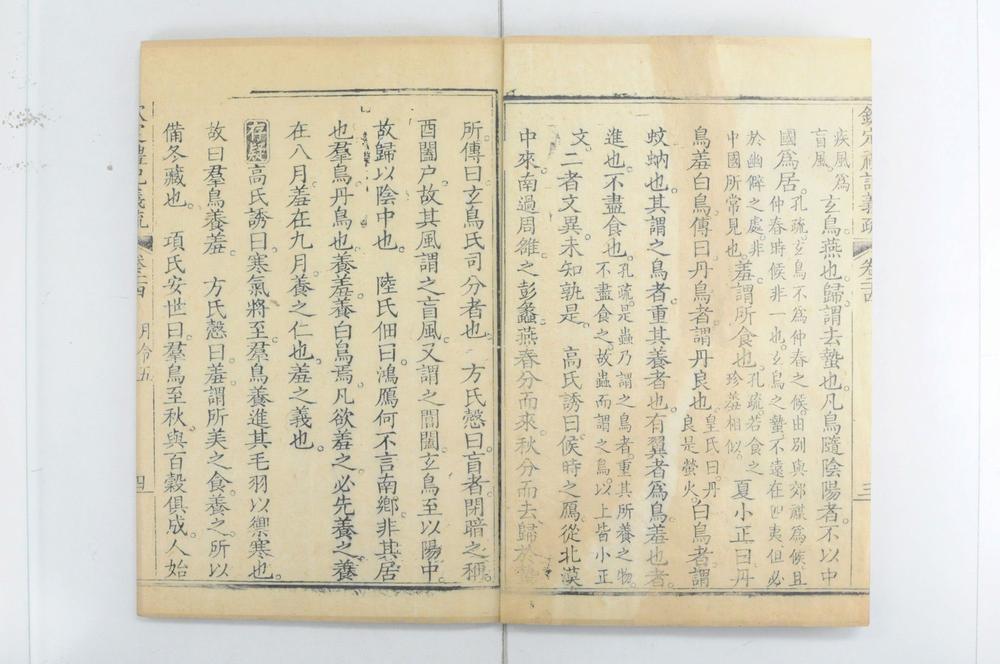 欽定禮記義疏 卷二十四 三
疾風爲
盲風 玄鳥燕也歸謂去蟄也凡鳥隨陰陽者不以中
國爲居 孔疏玄鳥不爲仲春之候由別與郊禖爲候且
仲春時候非一也玄鳥之蟄不遠在四夷但必
於幽僻之處非
中國所常見也 羞謂所食也 孔疏若食之
珍羞相似 夏小正曰丹
鳥羞白鳥傳曰丹鳥者謂丹良也 皇氏曰丹
良是螢火 白鳥者謂
蚊蚋也其謂之鳥者重其養者也有翼者爲鳥羞也者
進也不盡食也 孔疏是蟲乃謂之鳥者重其所養之物
不盡食之故蟲而謂之鳥以上皆小正
文 二者文異未知孰是 高氏誘曰候時之鴈從北漠
中來南過周雒之彭蠡燕春分而來秋分而去歸
所傳曰玄鳥氏司分者也 方氏慤曰盲者閉暗之稱
酉闔户故其風謂之盲風又謂之閶闔玄鳥至以陽中
故歸以陰中也 陸氏佃曰鴻鴈何不言南鄉非其居
也羣鳥丹鳥也養羞養白鳥焉凡欲羞之必先養之養
在八月羞在九月養之仁也羞之義也
存疑 高氏誘曰寒氣將至羣鳥養進其毛羽以禦寒也
故曰羣鳥養羞 方氏慤曰羞謂所美之食養之所以
備冬藏也 項氏安世曰羣鳥至秋與百穀俱成人始
定禮記義疏 卷二十四 月令五 四